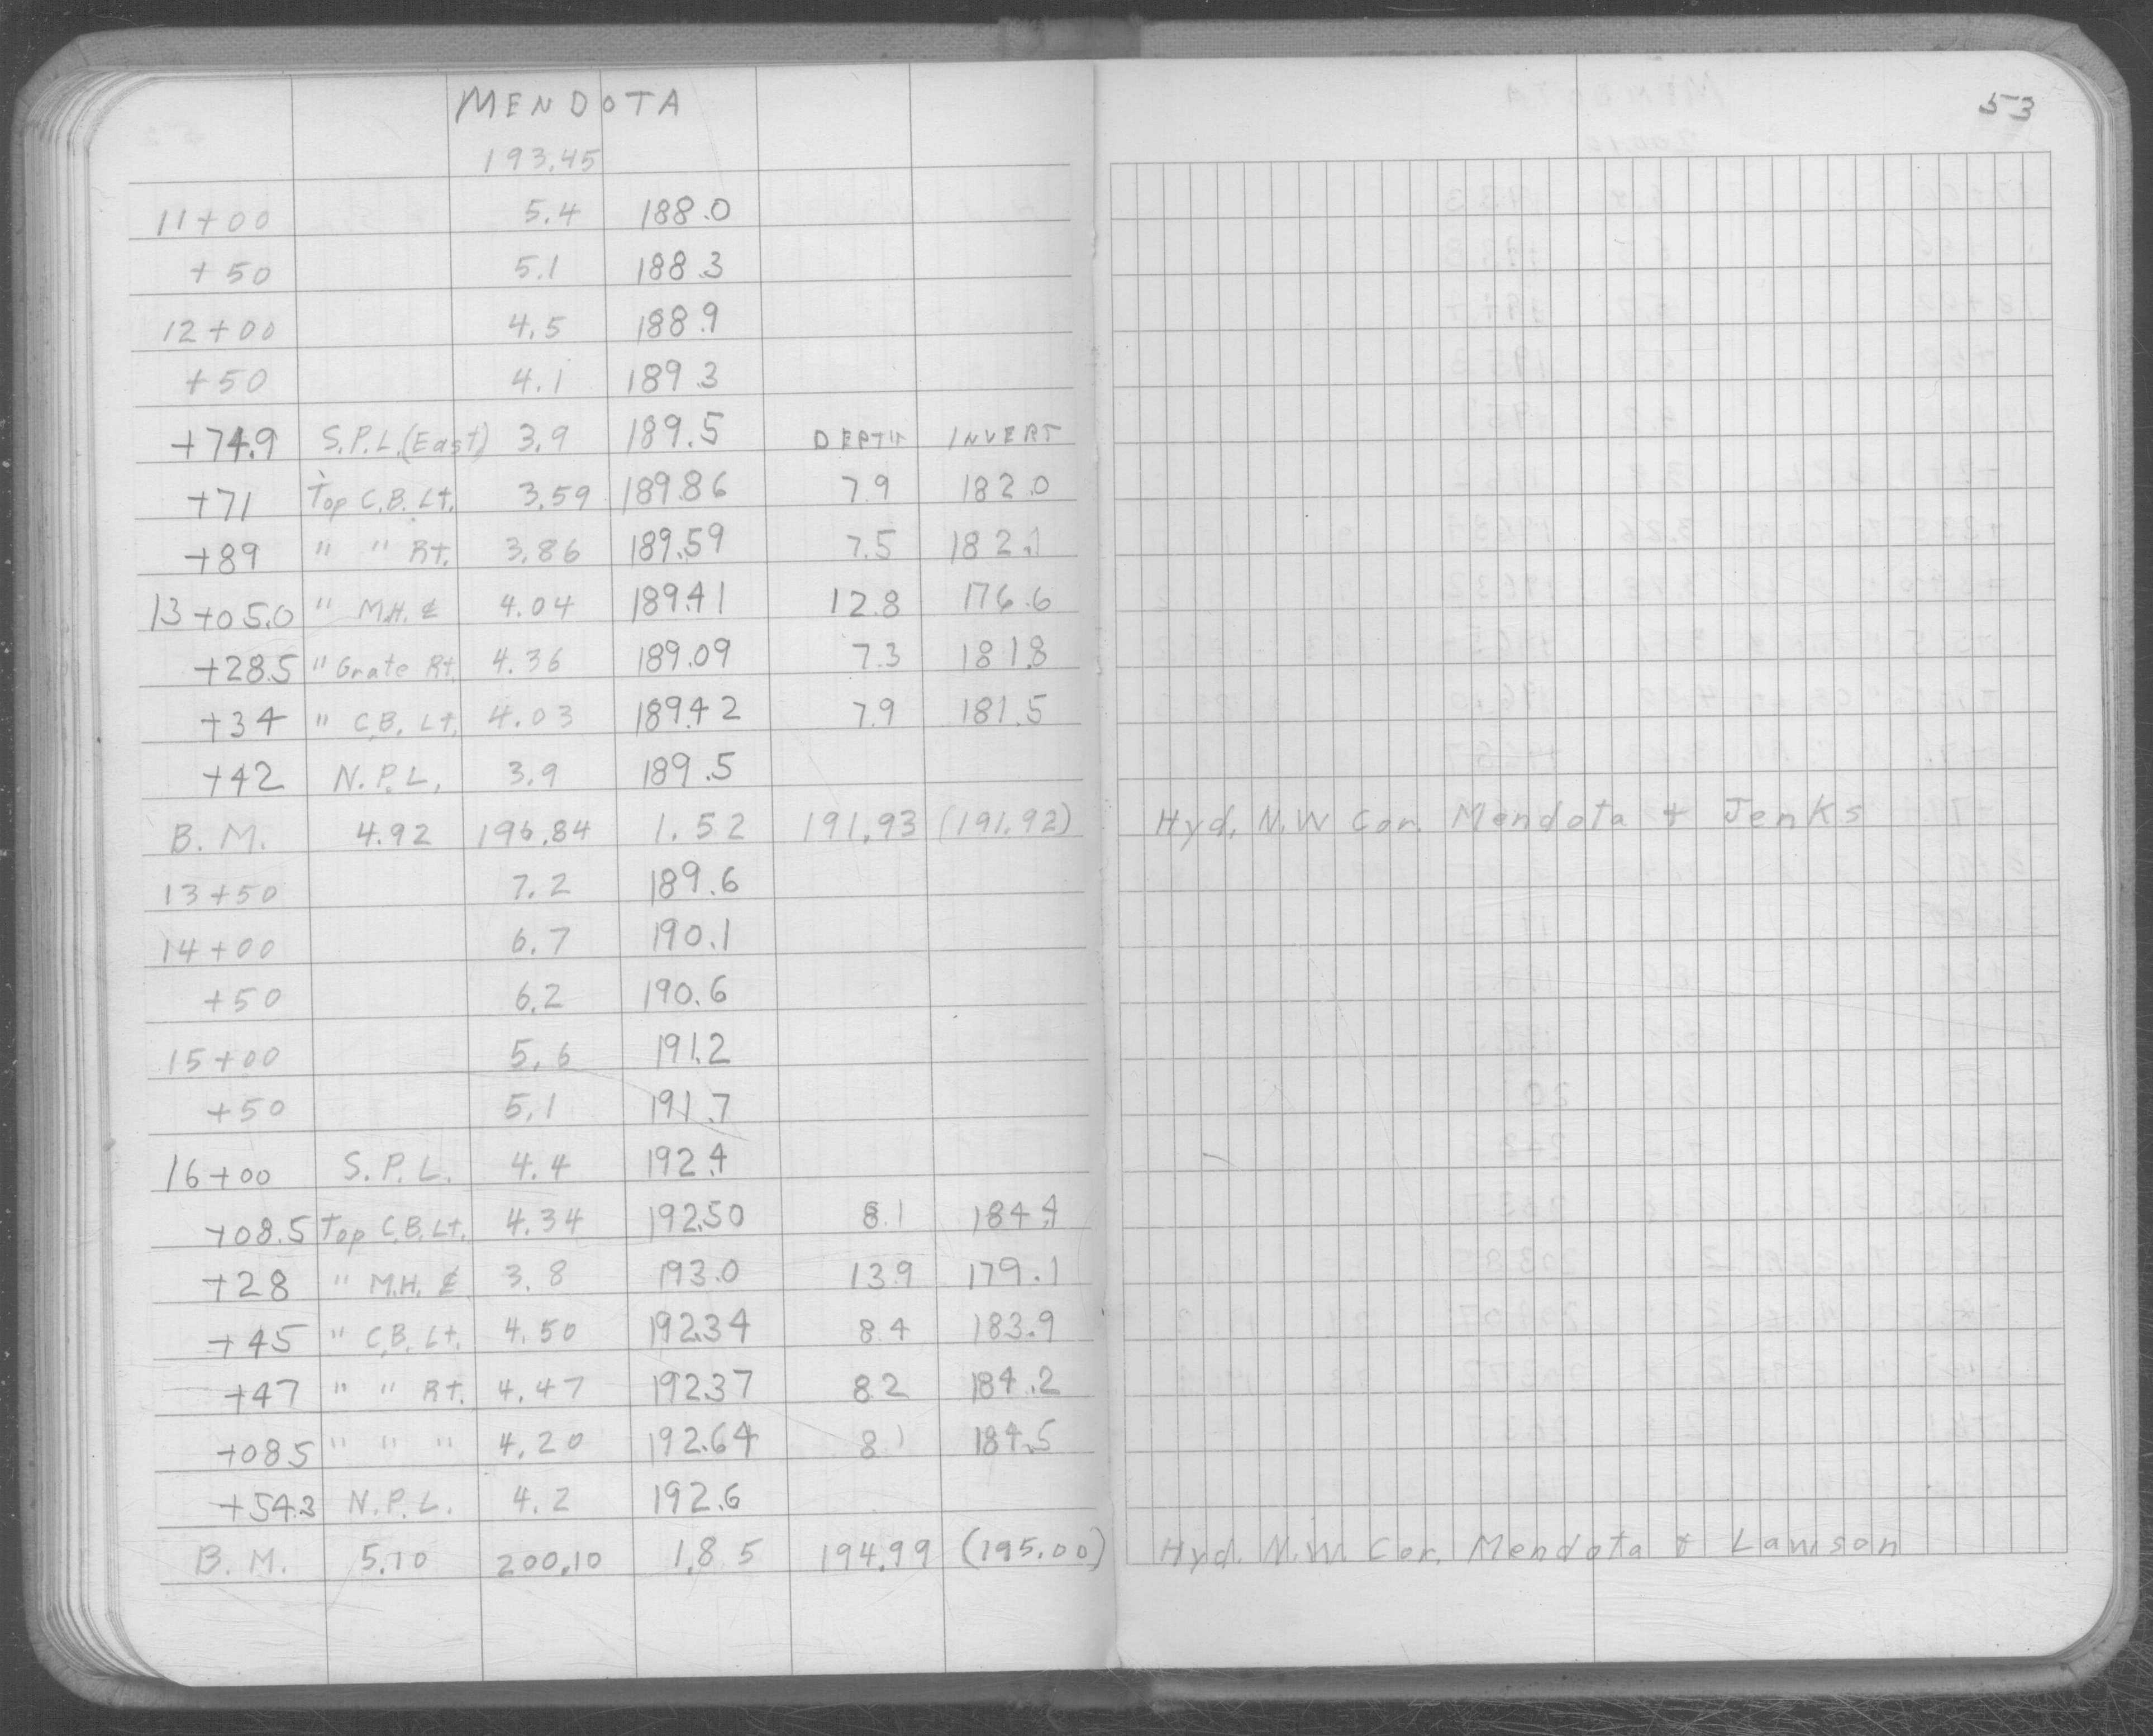 MENDOTA
53
193.45
11+00 5.4 188.0
+50 5.1 188.3
12+00 4.5 188.9
+50 4.1 189.3
+74.9 S.P.L.(East) 3.9 189.5 DEPTH INVERT
+71 Top C.B. Lt. 3.59 189.86 7.9 182.0
+89 " " Rt. 3.86 189.59 7.5 182.1
13+05.0 " M.H. ₵ 4.04 189.41 12.8 176.6
+28.5 " Grate Rt. 4.36 189.09 7.3 181.8
+34 " C.B. Lt. 4.03 189.42 7.9 181.5
+42 N.P.L. 3.9 189.5
B.M. 4.92 196.84 1.52 191.93 (191.92) Hyd. N.W Cor. Mendota & Jenks
13+50 7.2 189.6
14+00 6.7 190.1
+50 6.2 190.6
15+00 5.6 191.2
+50 5.1 191.7
16+00 S.P.L. 4.4 192.4
+08.5 Top C.B. Lt. 4.34 192.50 8.1 184.4
+28 " M.H. ₵ 3.8 193.0 13.9 179.1
+45 " C.B. Lt. 4.50 192.34 8.4 183.9
+47 " " Rt. 4.47 192.37 8.2 184.2
+08.5 " " " 4.20 192.64 8.1 184.5
+54.3 N.P.L. 4.2 192.6
B.M. 5.10 200.10 1.85 194.99 (195.00) Hyd. N.W. Cor. Mendota & Lawson